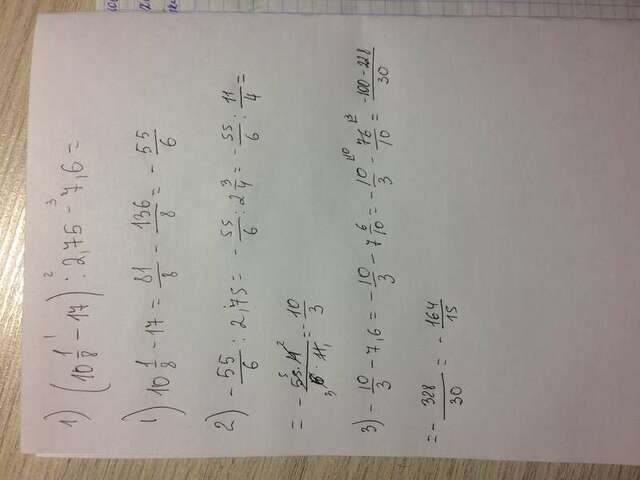 1) (10 1/8 - 17) : 2,75 - 7,6 =
1) 10 1/8 - 17 = 81/8 - 136/8 = - 55/6
2) - 55/6 : 2,75 = - 55/6 : 2 3/4 = - 55/6 : 11/4 =
= - 55·4/6·11 = - 10/3
3) - 10/3 - 7,6 = - 10/3 - 7 6/10 = - 10/3 - 76/10 = -100-228/30
= - 328/30 = - 164/15